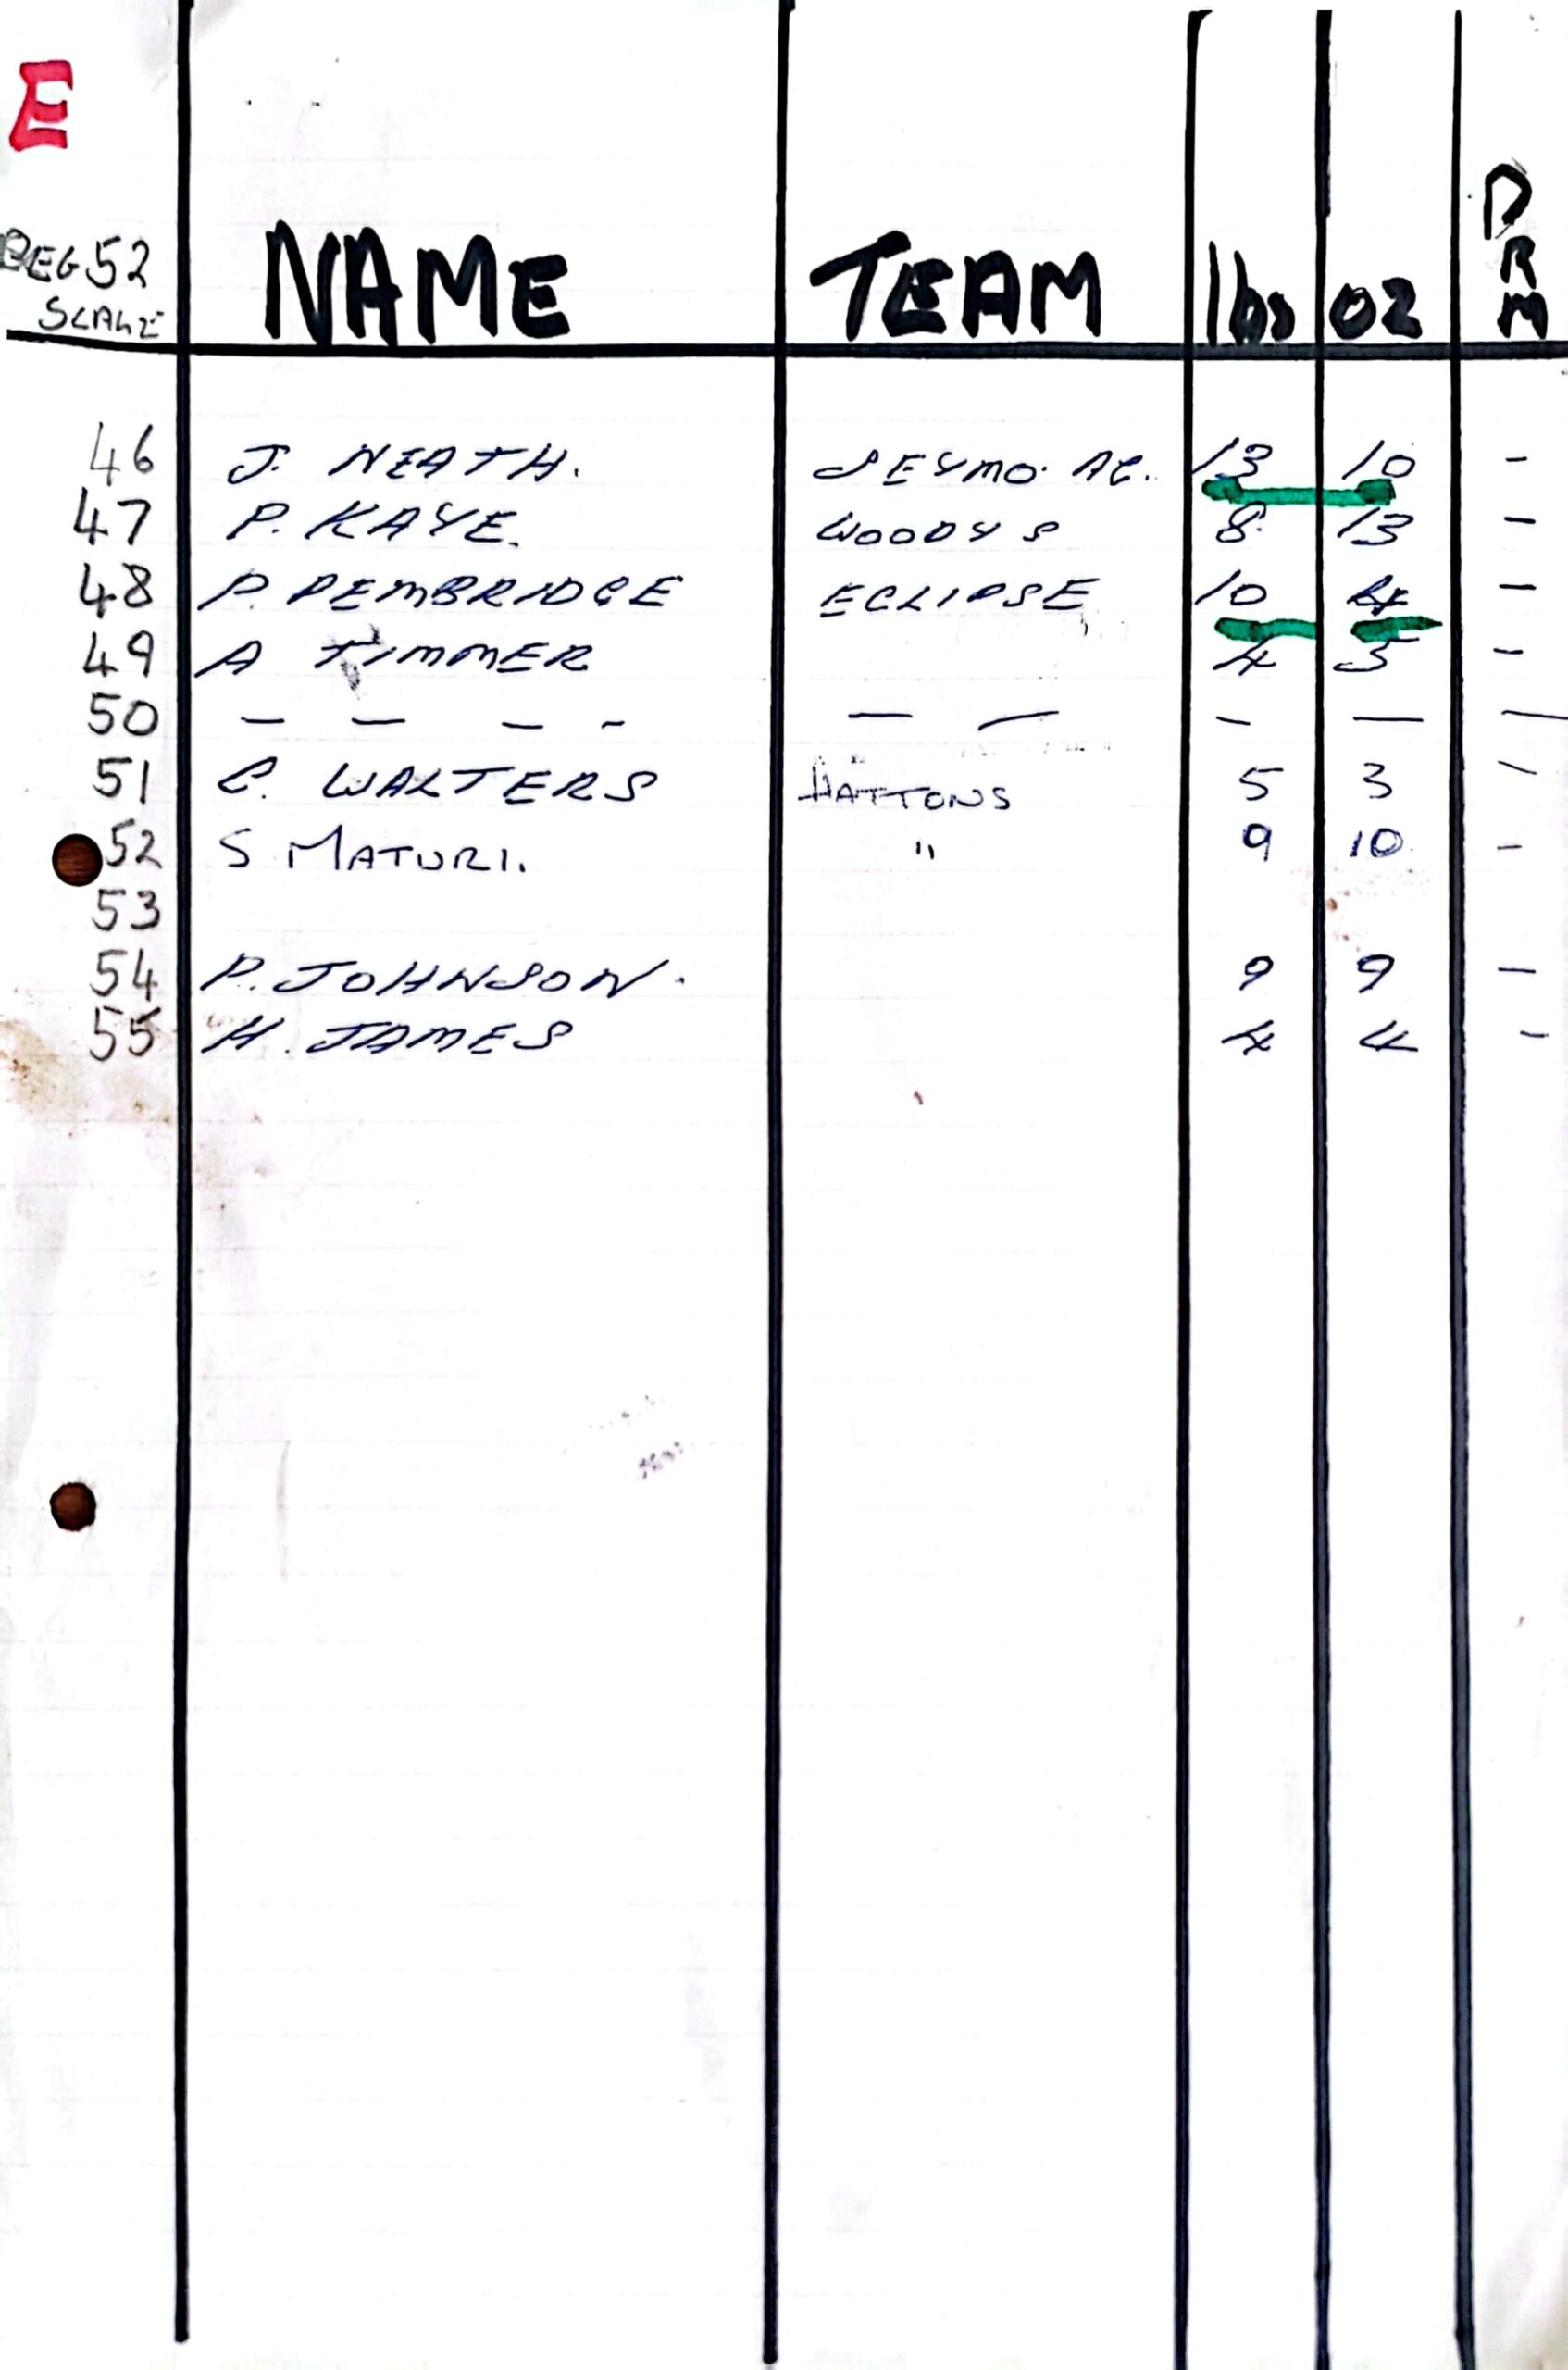 E
PEG 52 NAME TEAM lbs oz DRM
SCALE
46 J. NEATH. SEYMO. AC. 13 10 -
47 P. KAYE. WOODYS 8 13 -
48 P. PEMBRIDGE ECLIPSE 10 4 -
49 A TIMMER 4 5 -
50 - - - - - - - - -
51 C. WALTERS HATTONS 5 3 -
52 S MATURI. " 9 10 -
53
54 P. JOHNSON. 9 9 -
55 H. JAMES 4 4 -